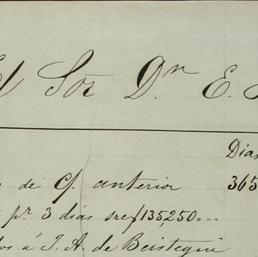 El Sor Dn E.
Dias
de c/. anterior 365
pr. 3 dias sre/135,250..
á J. A. de Beistegui